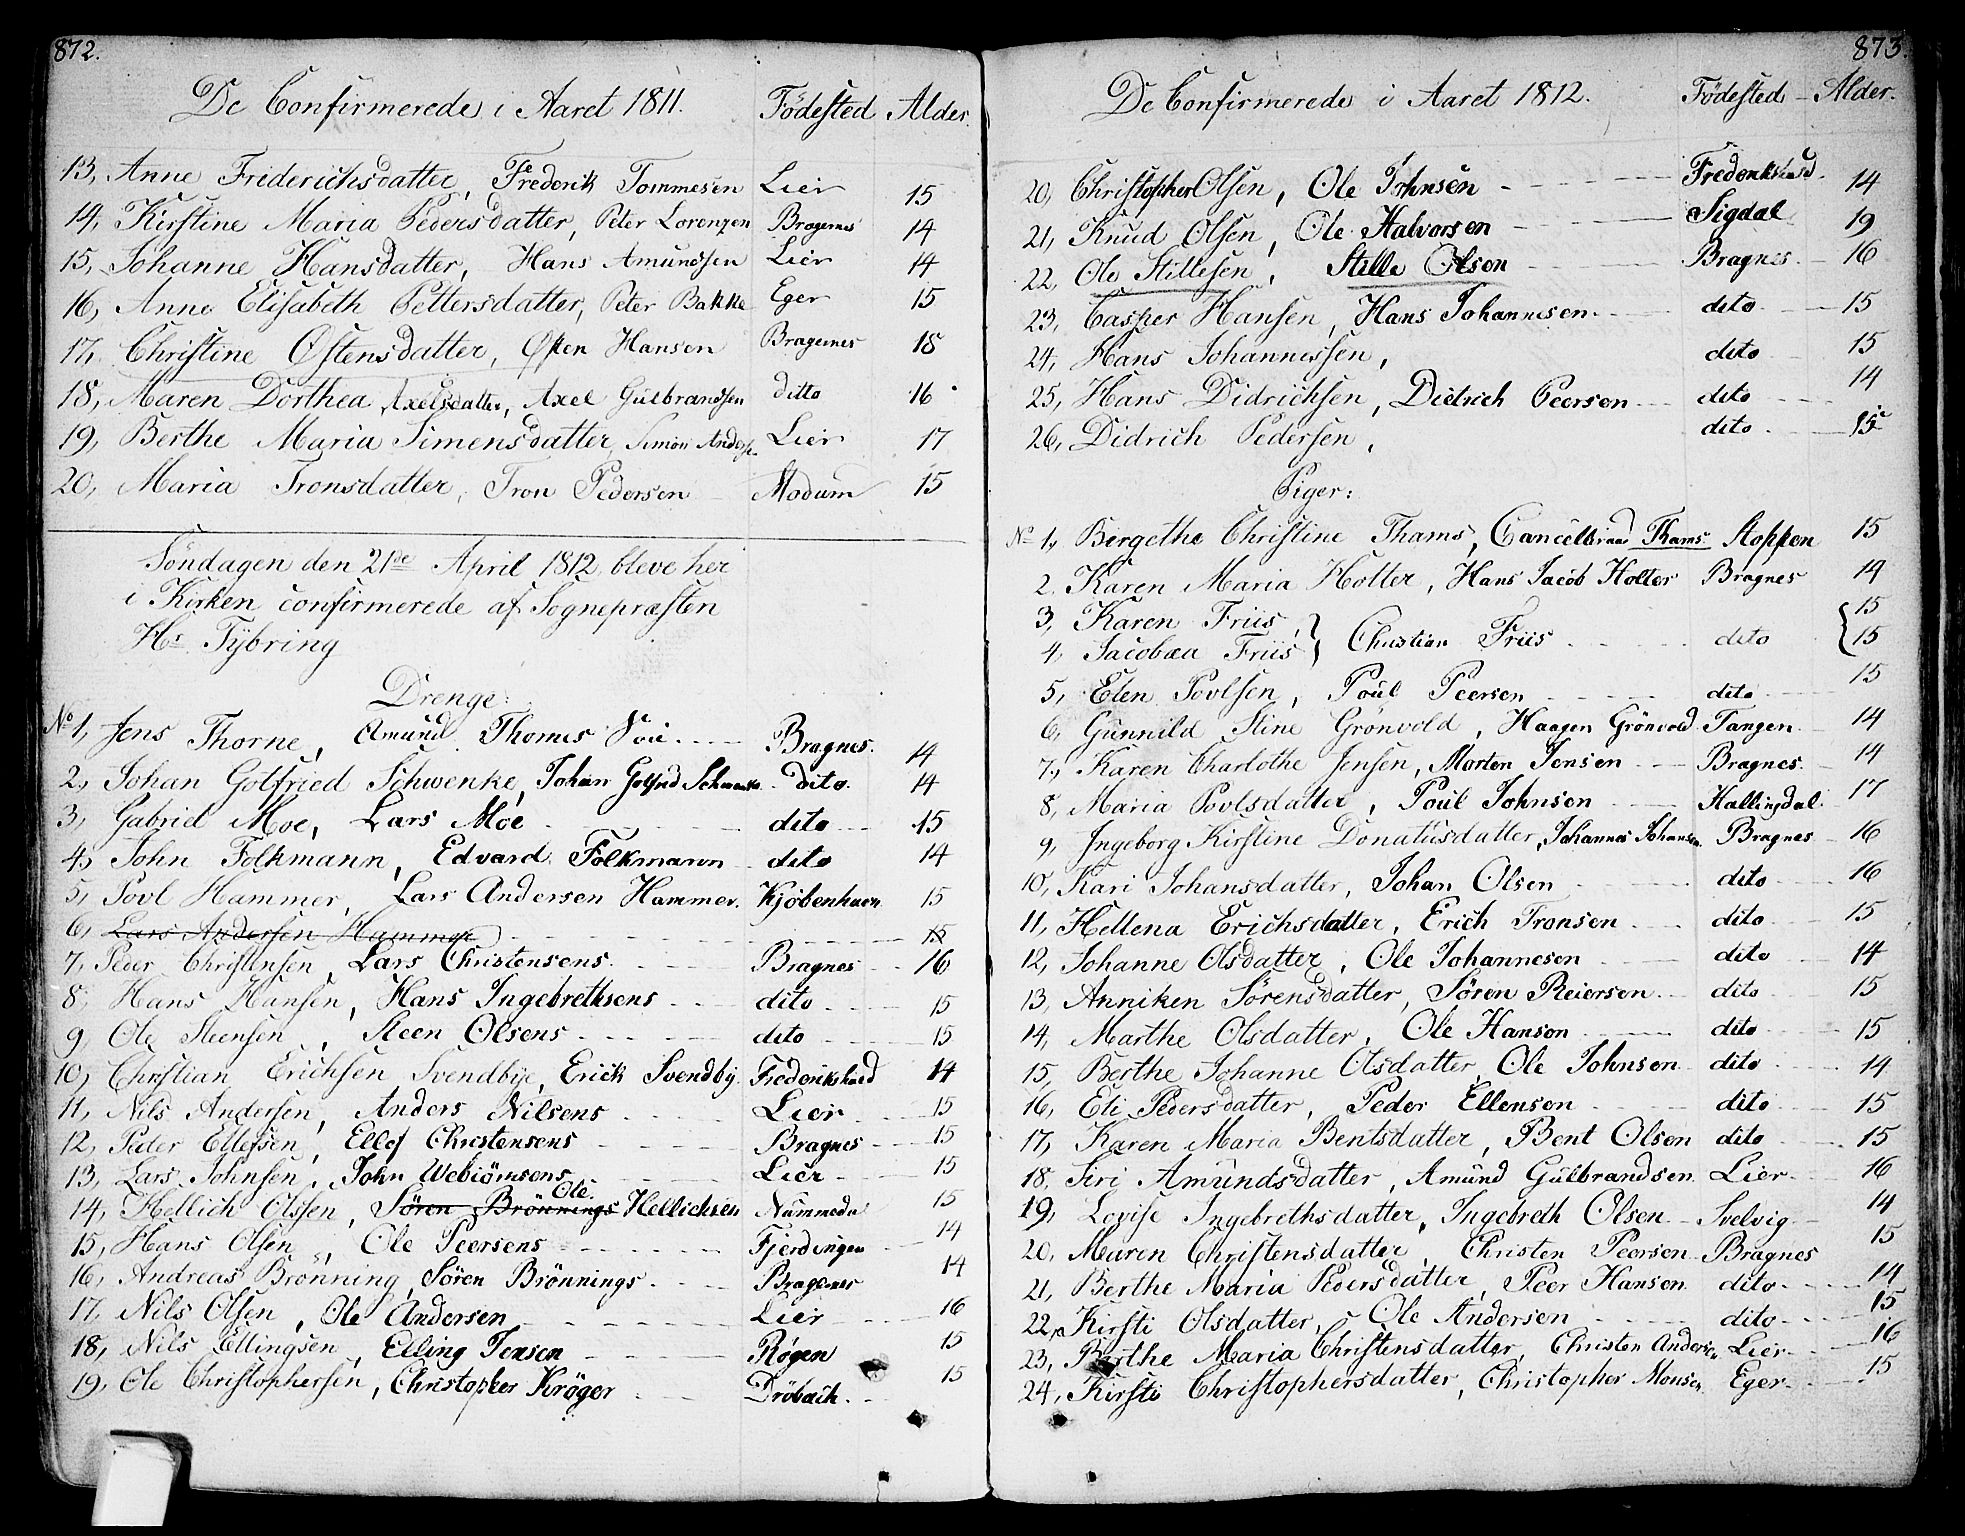 872.
De Confirmerede i Aaret 1811. Födested Alder.
13, Anne Friderichsdatter, Frederik Tommesen Lier 15
14, Kirstine Maria Pedersdatter, Peter Lorenzen Bragernes 14
15, Johanne Hansdatter, Hans Amundsen Lier 14
16, Anne Elisabeth Pettersdatter, Peter Bakke Eger 15
17, Christine Östensdatter, Østen Hansen Bragernes 18
18, Maren Dorthea Axelsdatter, Axel Gulbrandsen ditto 16
19, Berthe Maria Simensdatter, Simon Lier 17
20, Maria Tronsdatter, Tron Pedersen Modum 15
Söndagen den 21de April 1812 bleve her
i Kirken confirmerede af Sognepræsten
Hr. Tÿbring
Drenge:
No 1, Jens Thorne, Amund Thomes Bragnes. 14
2, Johan Gotfried Schwenke, Johan Gotfried Schwenke dito. 14
3, Gabriel Moe, Lars Moe dito 15
4, John Folkmann, Edvard Folkmann dito 14
5, Povl Hammer, Lars Andersen Hammer. Kjöbenhavn 15
6, Lars Andersen Hammer 15
7, Peder Christensen, Lars Christensens Bragnes 16
8, Hans Hansen, Hans Ingebrethsens dito 15
9, Ole Steensen, Steen Olsens dito 15
10, Christian Erichsen Svendbye, Erick Svendby. Frederikshald 14
11, Nils Andersen, Anders Nilsens Lier 15
12, Peder Ellefsen, Ellef Christensens Bragnes 15
13, Lars Johnsen, John Webiörnsens Lier 15
14, Hellich Olssen, Sören Brönnings Ole Hellichsen Nummedal 15
15, Hans Olsen, Ole Peersens Fjerdingen 14
16, Andreas Brönning, Sören Brönnings Bragernes 14
17, Nils Olsen, Ole Andersen Lier 16
18, Nils Ellingsen, Elling Jensen Rögen 15
19, Ole Christophersen, Christopher Kröger Dröbach. 15
873.
De Confirmerede i Aaret 1812. Födested Alder.
20, Christopher Olsen, Ole Johnsen Frederikstad. 14
21, Knud Olsen, Ole Halvorsen Sigdal 19
22, Ole Stillesen, Stille Olsen Bragnes 16
23, Casper Hansen, Hans Johannesen dito 15
24, Hans Johannessen, dito 15
25, Hans Didrichsen, Diedrich Peersen dito 14
26, Didrich Pedersen, dito 15
Piger:
No 1, Birgethe Christine Thams, Cancelliraad Thams Stoppen 15
2, Karen Maria Holter, Hans Jacob Holter Bragnes 19
3, Karen Friis, 15
4, Jacobæa Friis } Christian Friis dito { 15
5, Elen Povlsen, Poul Peersen dito 15
6, Gunnild Stine Grönvold, Haagen Grönvold Tangen 14
7, Karen Charlothe Jensen, Morten Jensen Bragnes 14
8, Maria Povlsdatter, Poul Johnsen Hallingdal. 17
9, Ingeborg Kirstine Donatusdatter, Johannes Johansen Bragnes 16
10, Kari Johansdatter, Johan Olsen dito 16
11, Hellena Erichsdatter, Erich Tronsen dito 15
12, Johanne Olsdatter, Ole Johannesen dito 14
13, Anniken Sörensdatter, Sören Reiersen dito 15
14, Marthe Olsdatter, Ole Hansen dito 15
15, Berthe Johanne Olsdatter, Ole Johnsen dito 14
16, Eli Pedersdatter, Peder Ellensen dito 15
17, Karen Maria Bentsdatter, Bent Olsen dito 15
18, Siri Amundsdatter, Amund Gulbrandsen Lier 16
19, Lovise Ingebrethsdatter, Ingebreth Olsen Svelvig 14
20, Maren Christensdatter, Christen Peersen Bragnes 15
21, Berthe Maria Pedersdatter, Peer Hansen dito 14
22, Kirsti Olsdatter, Ole Andersen dito 15
23, Berthe Maria Christensdatter, Christen Andersen Lier 16
24, Kirsti Christophersdatter, Christopher Monsen Eger 15